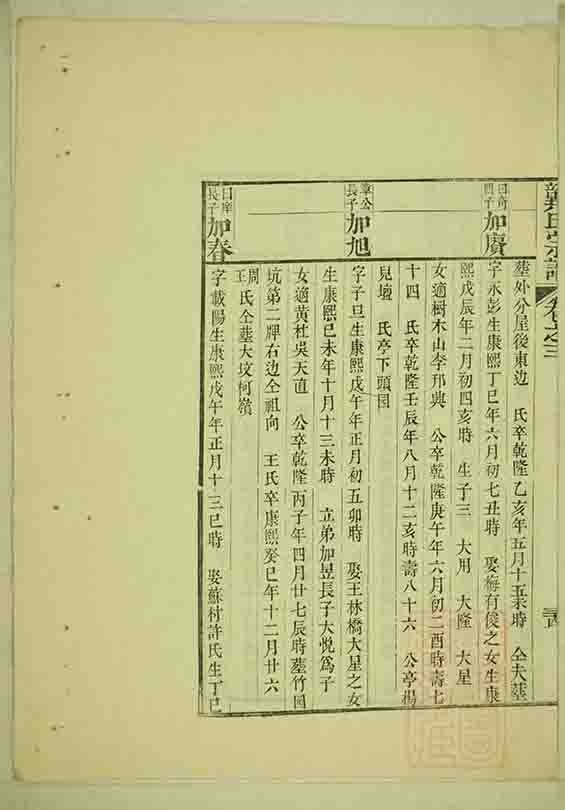 氏宗譜 卷之三
葬外分屋後東边 氏卒乾隆乙亥年五月十五未時 仝夫葬
曰奇 四子 加廣
字永彭生康熙丁巳年六月初七丑時 娶梅有俊之女生康
熙戊辰年二月初四亥時 生子三 大用 大隆 大星
女適樹木山李邢興 公卒乾隆庚午年六月初二酉時壽七
十四 氏卒乾隆壬辰年八月十二亥時壽八十六 公葬楊
兒壇 氏葬下頭囯
章公 長子 加旭
字子旦生康熙戊午年正月初五卯時 娶王林橋大星之女
生康熙己未年十月十三未時 立弟加昱長子大悅為子
女適黃杜吳天直 公卒乾隆丙子年四月廿七辰時葬竹囯
坑第二牌右边仝祖向 王氏卒康熙癸巳年十二月廿六
周王氏仝葬大坟柯嶺
曰庠 長子 加春
字載陽生康熙戊午年正月十三巳時 娶蘇村許氏生丁巳